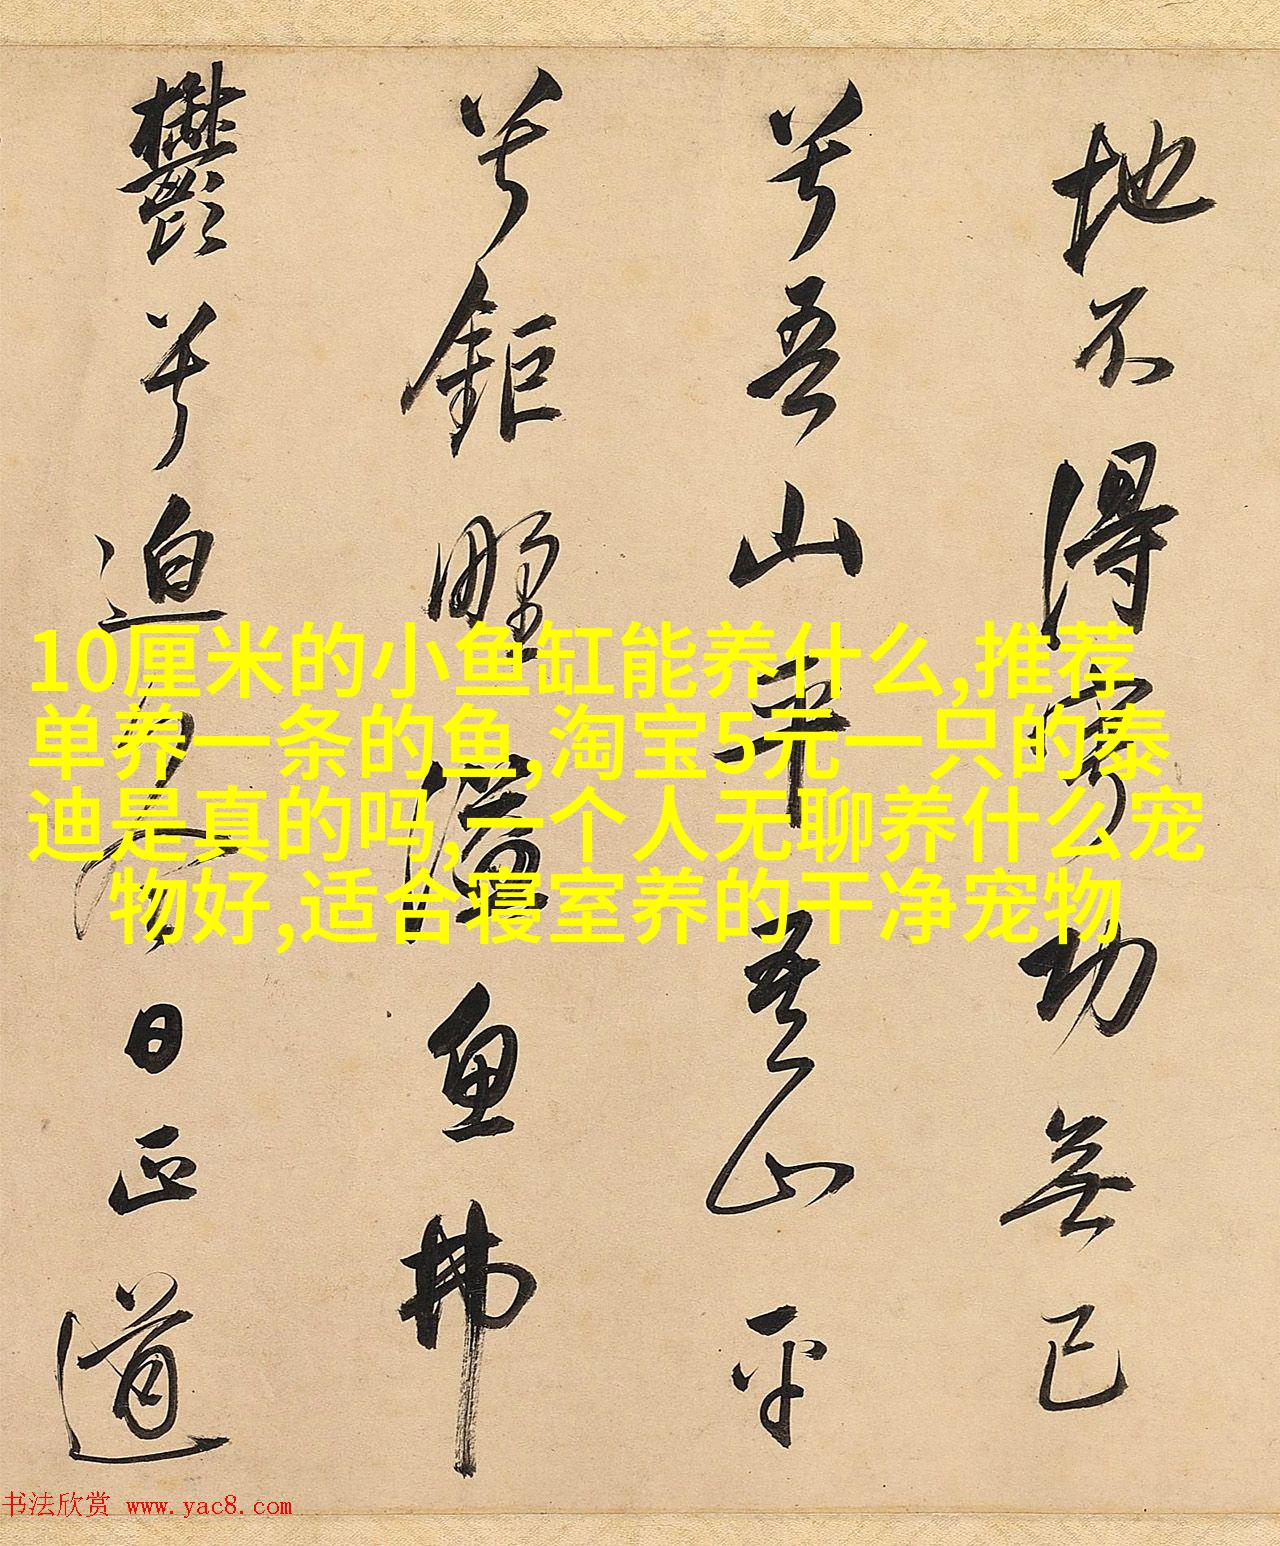 地不得寧功無已
兮吾山平吾山平
兮鉅野溢魚拂
鬱兮迫冬日正道
10厘米的小鱼缸能养什么,推荐
单养一条的鱼,淘宝5元一只的泰
迪是真的吗,一个人无聊养什么宠
物好,适合寝室养的干净宠物
书法欣赏 www.yac8.com